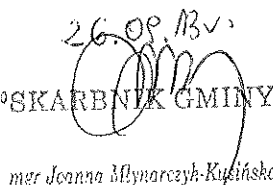 26.09.13r.
SKARBNIK GMINY
mgr Joanna Młynarczyk-Kusińska